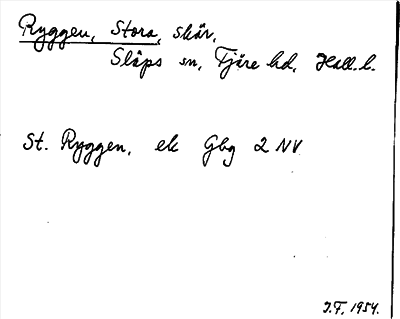 Ryggen, Stora, skär,
Släps sn, Fjäre hd, Hall. l.
St. Ryggen, ek Gbg 2 NV
J.F. 1954.